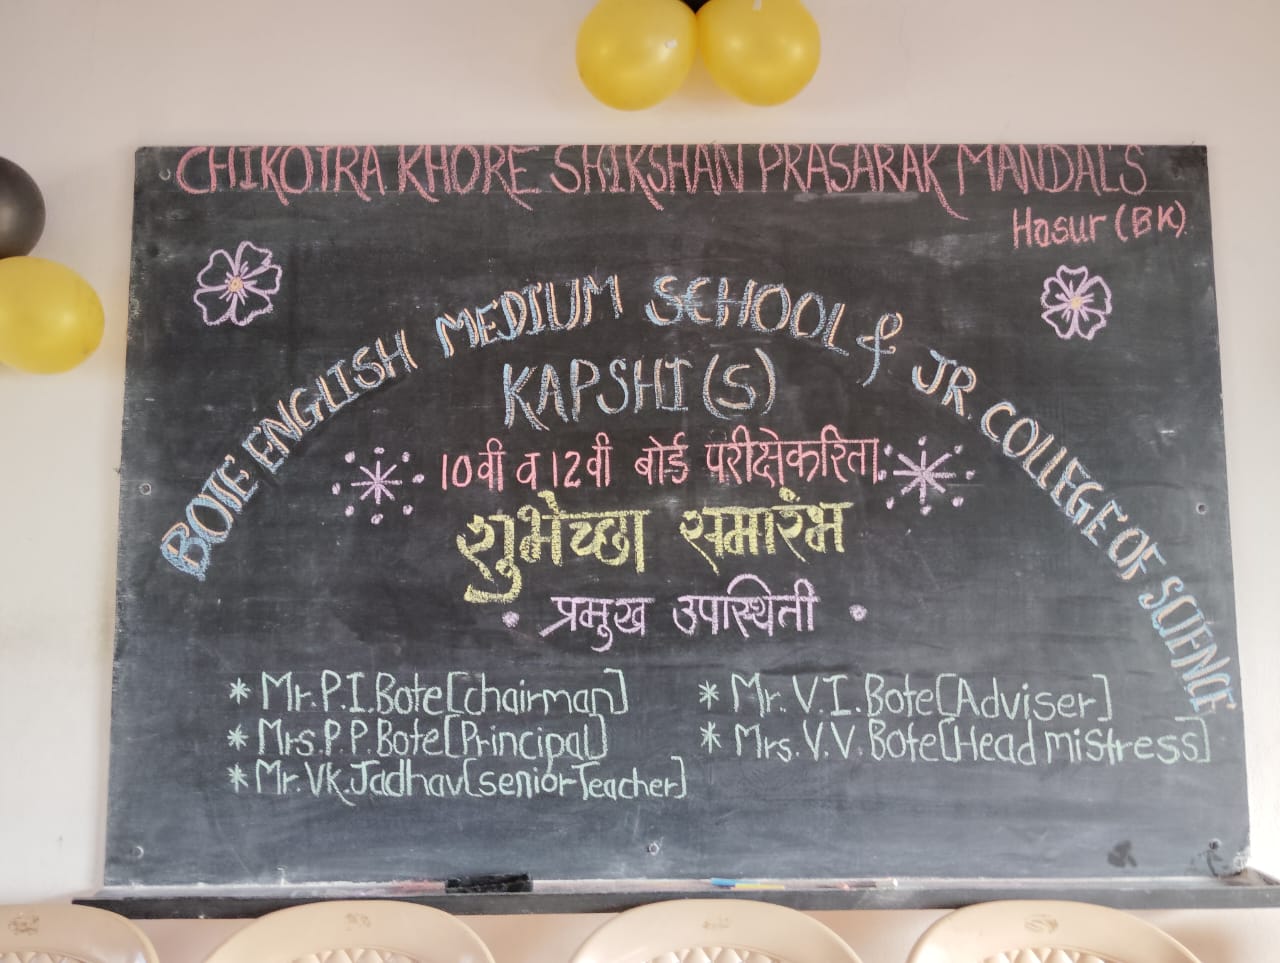 CHIKOTRA KHORE SHIKSHAN PRASARAK MANDAL'S
Hasur (BK)
BOTE ENGLISH MEDIUM SCHOOL & JR. COLLEGE OF SCIENCE
KAPSHI (S)
10वी व 12वी बोर्ड परीक्षेकरिता
शुभेच्छा समारंभ
प्रमुख उपस्थिती
* Mr. P. I. Bote [chairman]
* Mr. V. I. Bote [Adviser]
* Mrs. P. P. Bote [Principal]
* Mrs. V. V Bote [Head mistress]
* Mr. Vk. Jadhav [senior Teacher]